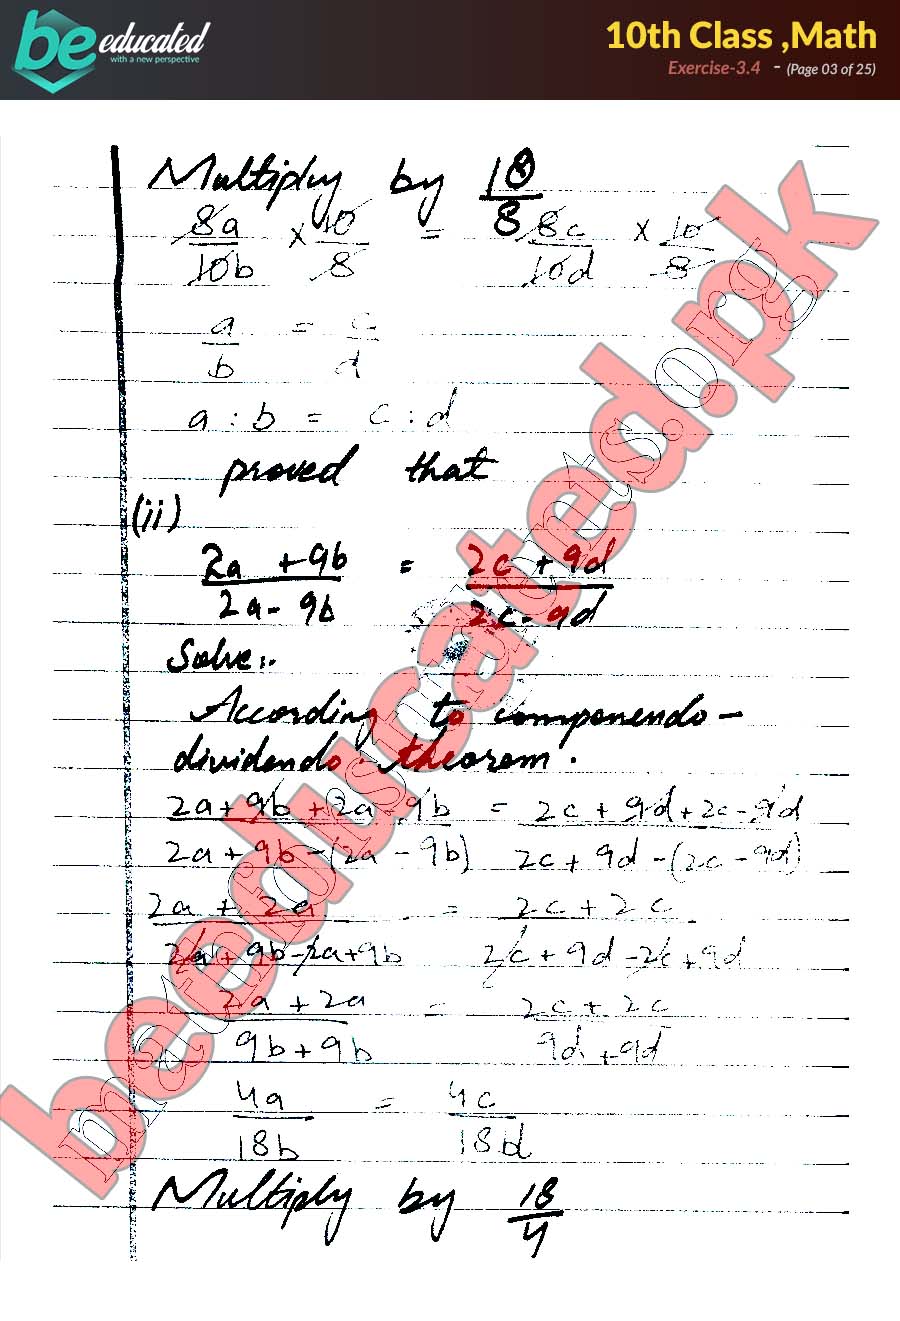 be educated
with a new perspective
10th Class ,Math
Exercise-3.4 - (Page 03 of 25)
Multiply by 10/8
8a/10b × 10/8 = 8c/10d × 10/8
a/b = c/d
a : b = c : d
proved that
(ii)
2a + 9b / 2a - 9b = 2c + 9d / 2c - 9d
Solve:.
According to componendo-
dividendo. theorem.
2a + 9b + 2a - 9b / 2a + 9b - (2a - 9b) = 2c + 9d + 2c - 9d / 2c + 9d - (2c - 9d)
2a + 2a / 2a + 9b - 2a + 9b = 2c + 2c / 2c + 9d - 2c + 9d
2a + 2a / 9b + 9b = 2c + 2c / 9d + 9d
4a/18b = 4c/18d
Multiply by 18/4
beeducated.pk